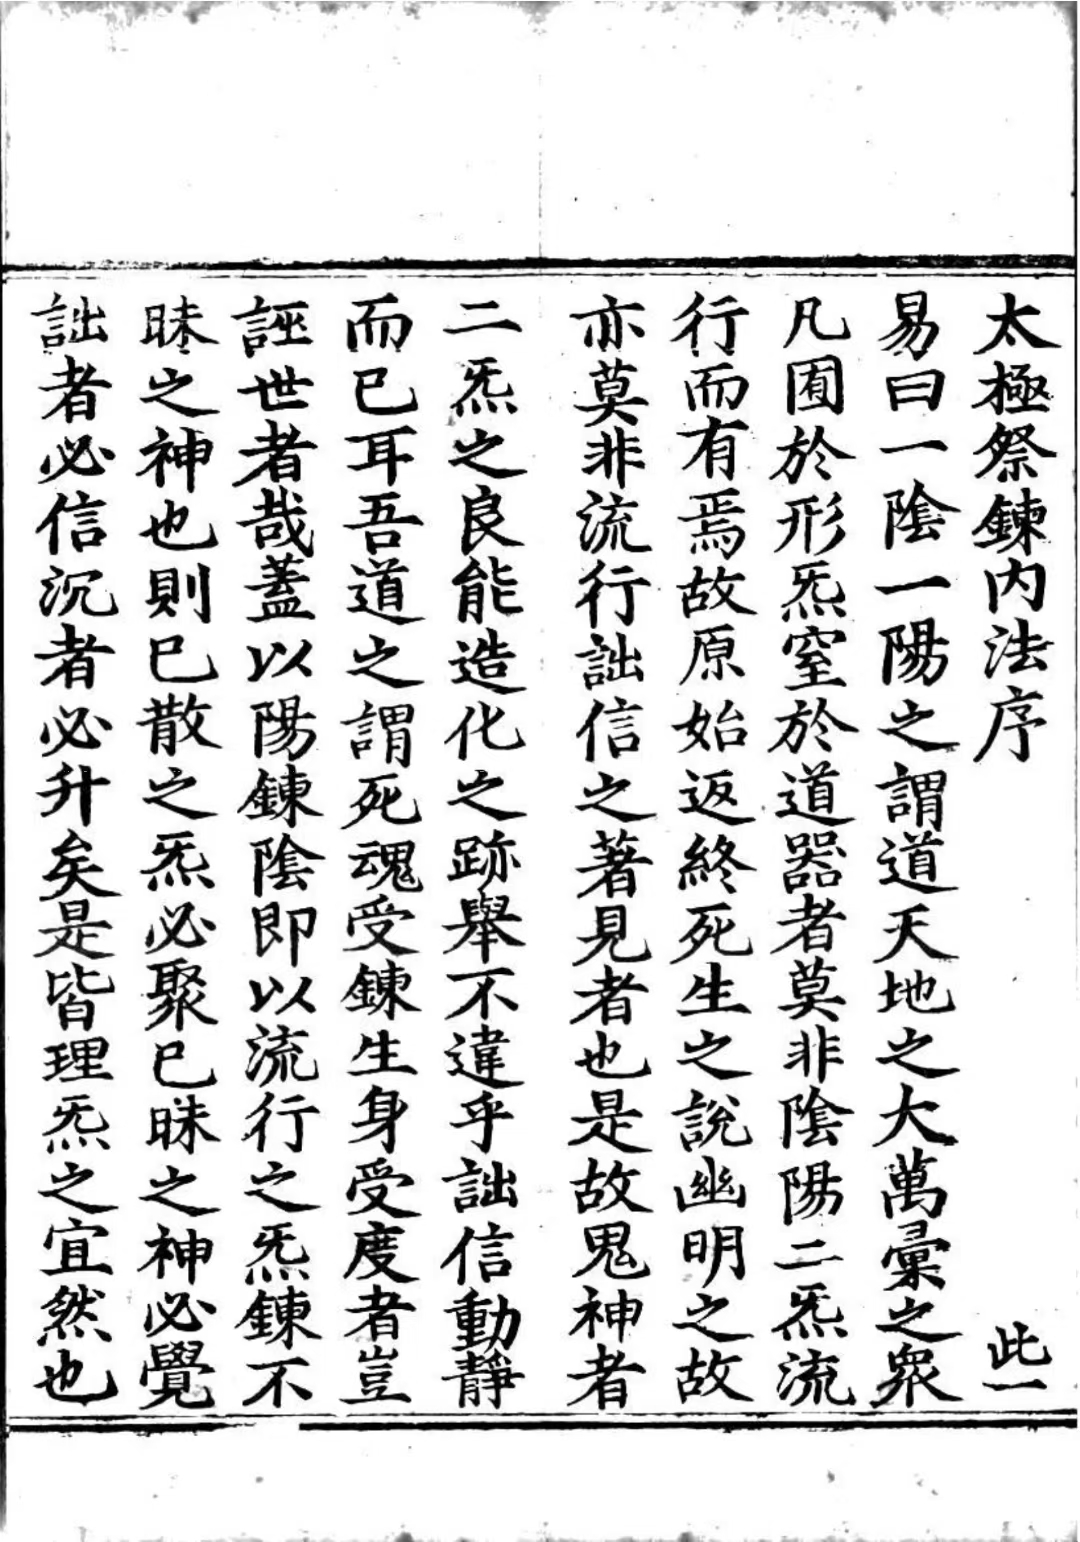 太極祭鍊内法序
此一
易曰一陰一陽之謂道天地之大萬彙之衆
凡囿於形炁窒於道器者莫非陰陽二炁流
行而有焉故原始返終死生之說幽明之故
亦莫非流行詘信之著見者也是故鬼神者
二炁之良能造化之跡舉不違乎詘信動靜
而已耳吾道之謂死魂受鍊生身受度者豈
誣世者哉蓋以陽鍊陰即以流行之炁鍊不
昧之神也則已散之炁必聚已昧之神必覺
詘者必信沉者必升矣是皆理炁之宜然也